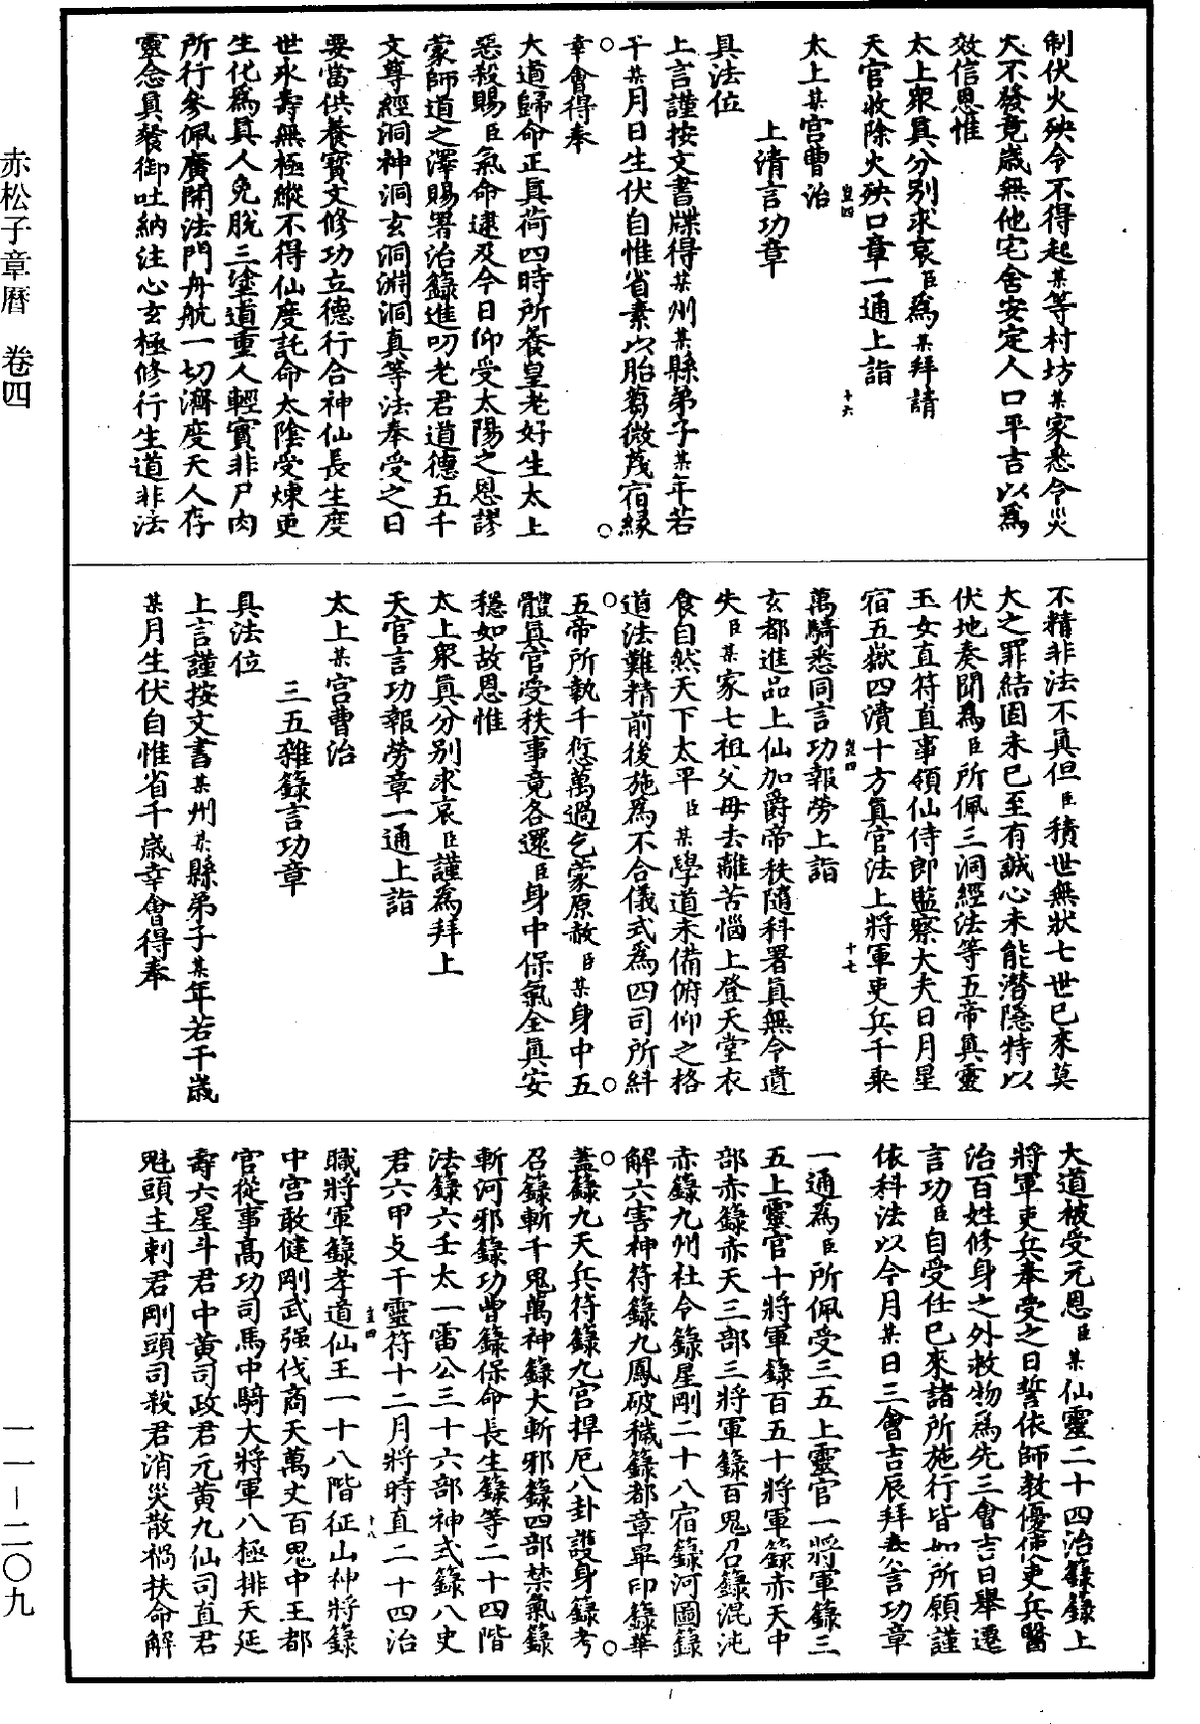 赤松子章曆　卷四
制伏火殃令不得起某等村坊某家悉令災
火不發竟歲無他宅舍安定人口平吉以為
效信恩惟
太上眾真分別求哀臣為某拜請
天官收除火殃口章一通上詣
太上某宮曹治
上清言功章
具法位
上言謹按文書牒得某州某縣弟子某年若
干某月日生伏自惟省素以胎蒭微茂宿緣
幸會得奉
大道歸命正真荷四時所養皇老好生太上
惡殺賜臣氣命逮及今日仰受太陽之恩謬
蒙師道之澤賜署治籙進叨老君道德五千
文尊經洞神洞玄洞淵洞真等法奉受之日
要當供養寶文修功立德行合神仙長生度
世永壽無極縱不得仙度託命太陰受煉更
生化為真人免脫三塗道重人輕實非尸肉
所行參佩廣開法門舟航一切濟度天人存
靈念真餐御吐納注心玄極修行生道非法
不精非法不真但臣積世無狀七世已來莫
大之罪結固未已至有誠心未能潛隱特以
伏地奏聞為臣所佩三洞經法等五帝真靈
玉女直符直事領仙侍郎監察大夫日月星
宿五嶽四瀆十方真官法上將軍吏兵千乘
萬騎悉同言功報勞上詣
玄都進品上仙加爵帝秩隨科署真無令遺
失臣某家七祖父母去離苦惱上登天堂衣
食自然天下太平臣某學道未備俯仰之格
道法難精前後施為不合儀式為四司所糾
五帝所執千愆萬過乞蒙原赦臣某身中五
體真官受秩事竟各還臣身中保氣全真安
穩如故恩惟
太上眾真分別求哀臣謹為拜上
天官言功報勞章一通上詣
太上某宮曹治
三五雜籙言功章
具法位
上言謹按文書某州某縣弟子某年若干歲
某月生伏自惟省千歲幸會得奉
大道被受元恩臣某仙靈二十四治籙籙上
將軍吏兵奉受之日誓依師教優使吏兵醫
治百姓修身之外救物為先三會吉日舉遷
言功臣自受任已來諸所施行皆如所願謹
依科法以今月某日三會吉辰拜奏言功章
一通為臣所佩受三五上靈官一將軍籙三
五上靈官十將軍籙百五十將軍籙赤天中
部赤籙赤天三部三將軍籙百鬼召籙混沌
赤籙九州社令籙星剛二十八宿籙河圖籙
解六害神符籙九鳳破穢籙都章畢印籙華
蓋籙九天兵符籙九宮捍厄八卦護身籙考
召籙斬千鬼萬神籙大斬邪籙四部禁氣籙
斬河邪籙功曹籙保命長生籙等二十四階
法籙六壬太一雷公三十六部神式籙八史
君六甲父干靈符十二月將時直二十四治
職將軍籙孝道仙王一十八階征山神將籙
中宮敢健剛武強伐商天萬丈百鬼中王都
官從事高功司馬中騎大將軍八極排天延
壽六星斗君中黃司政君元黃九仙司直君
魁頭主剌君剛頭司殺君消災散禍扶命解
一一－二〇九